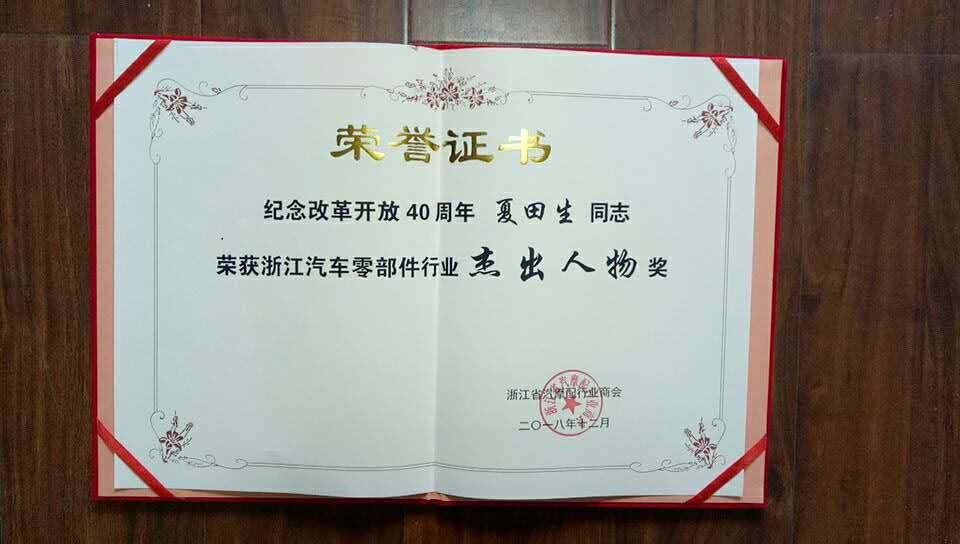 荣誉证书
纪念改革开放40周年 夏田生 同志
荣获浙江汽车零部件行业 杰出人物 奖
浙江省汽摩配行业商会
二〇一八年十二月
浙江省汽摩配行业商会